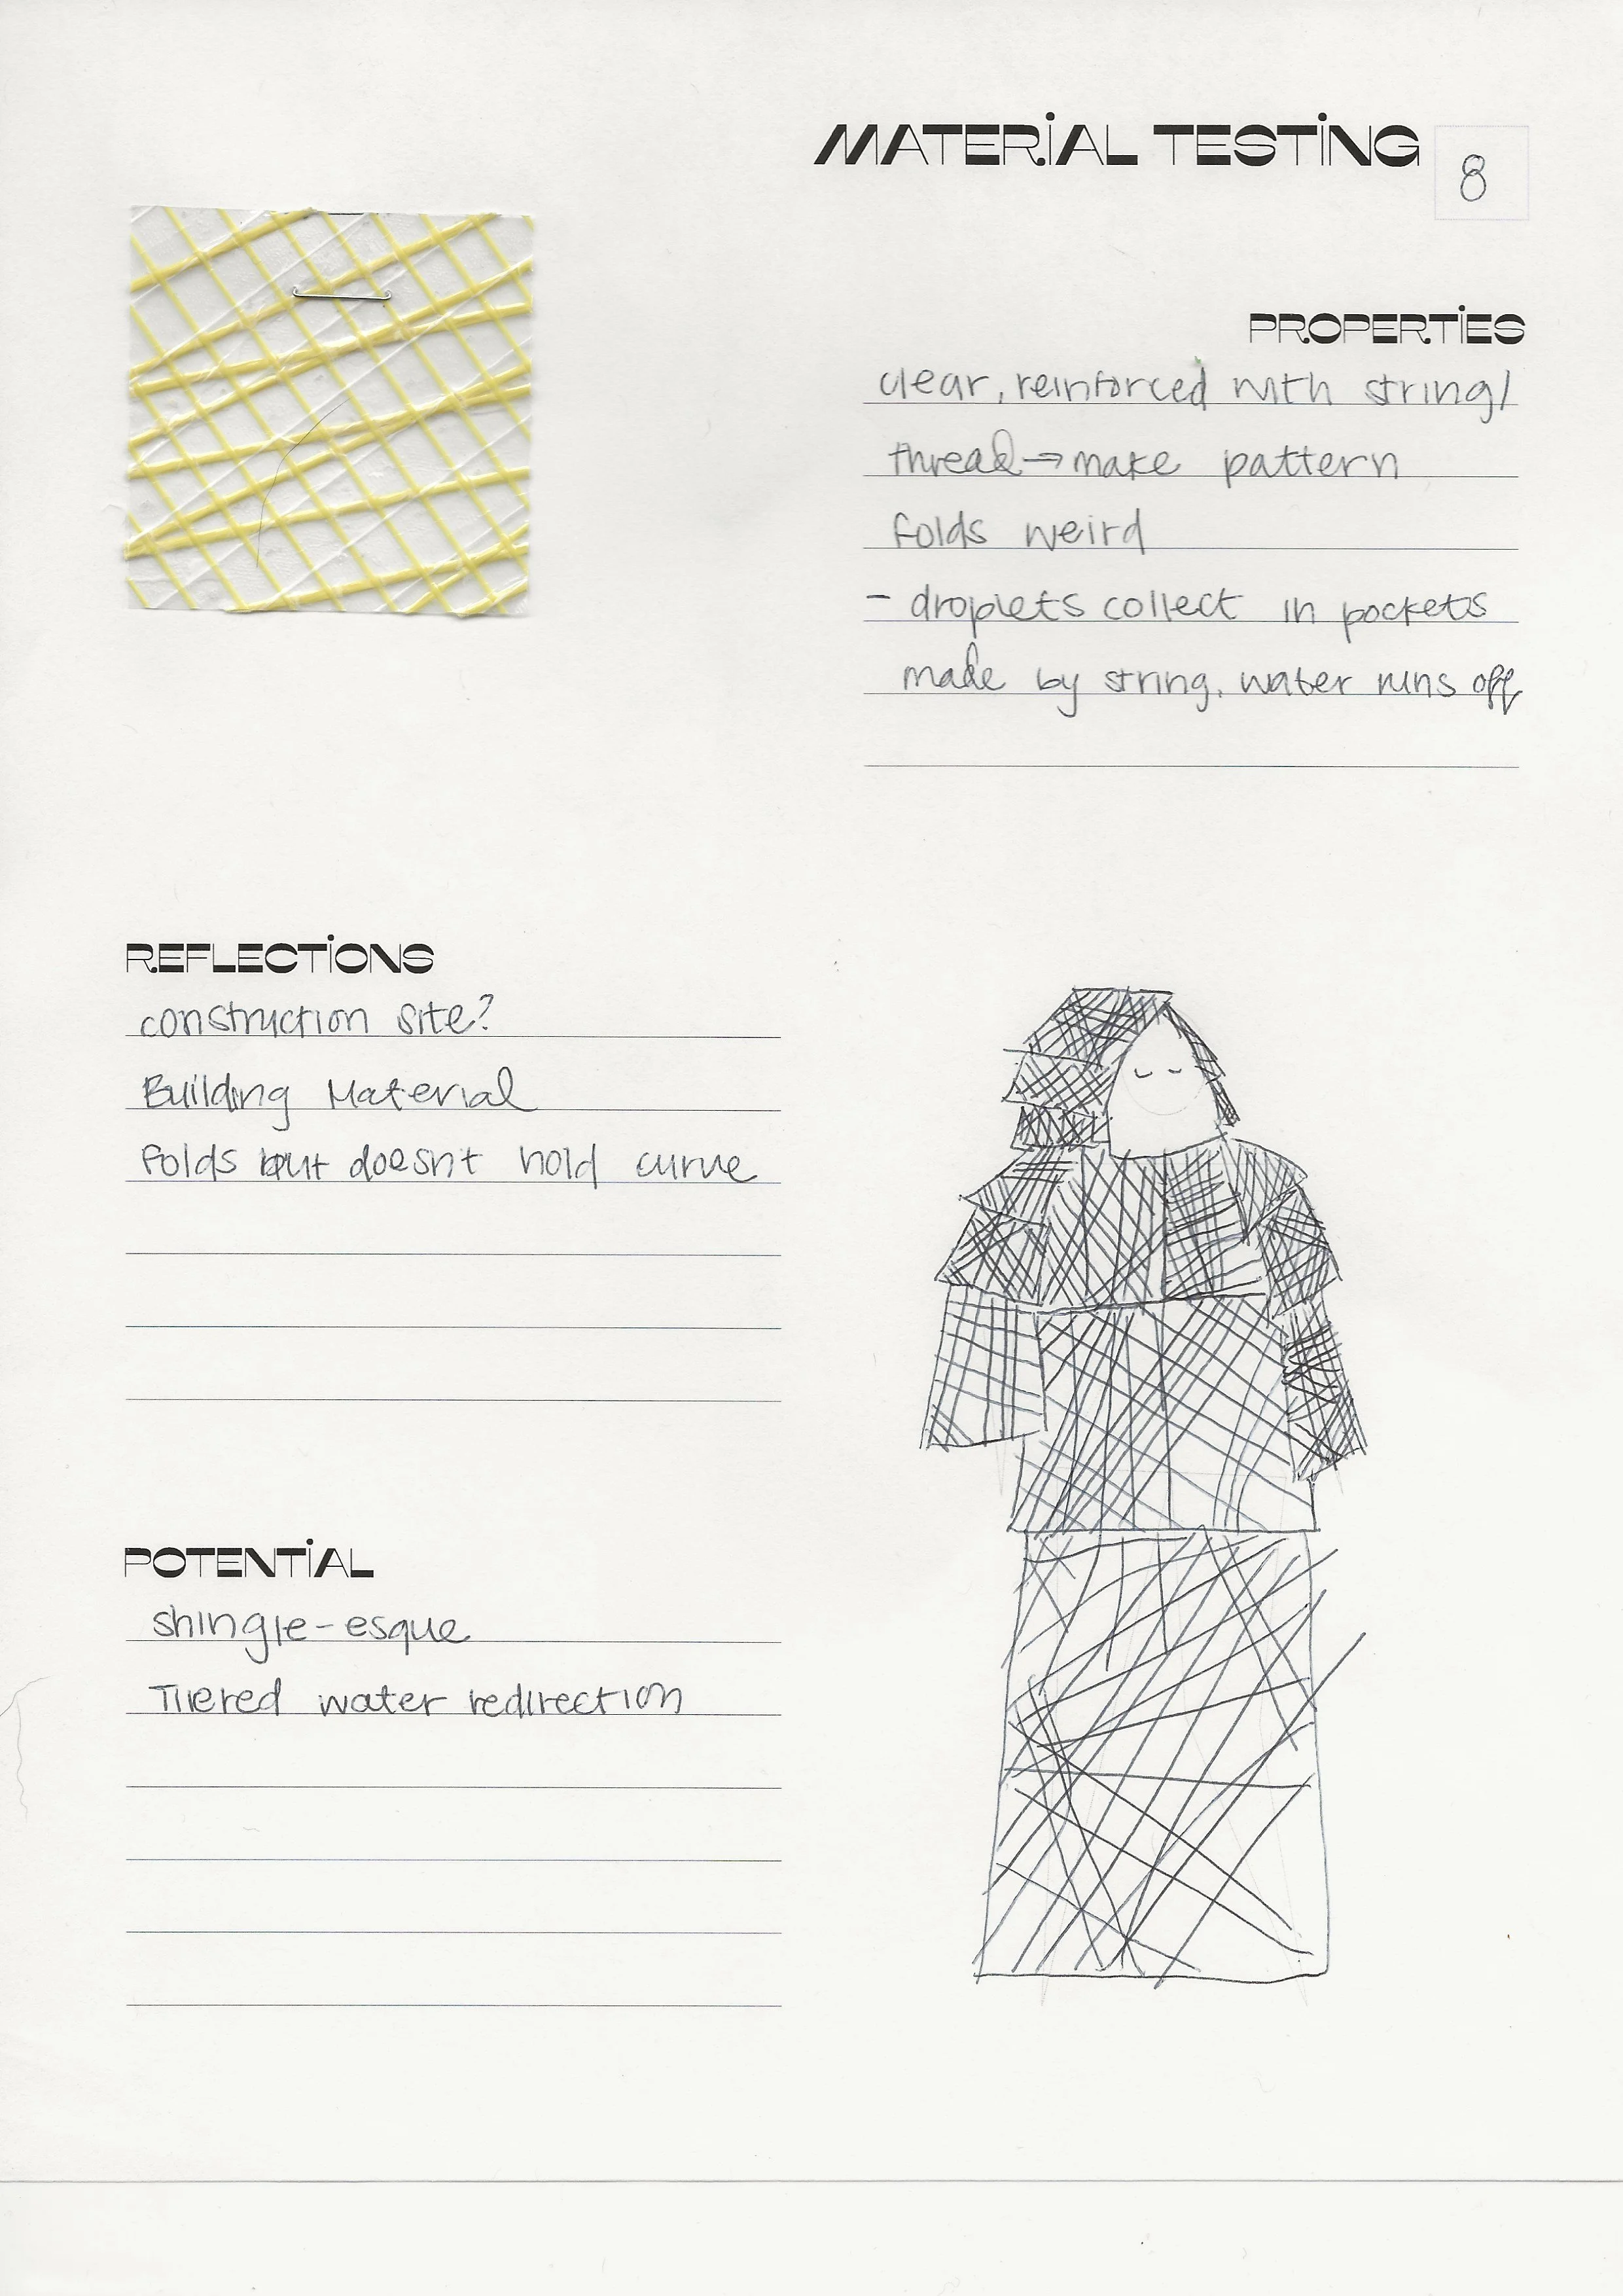 MATERIAL TESTING 8
PROPERTIES
clear, reinforced with string/
thread → make pattern
folds weird
- droplets collect in pockets
made by string, water runs off
REFLECTIONS
construction site?
Building Material
folds but doesn't hold curve
POTENTIAL
shingle-esque
Tiered water redirection